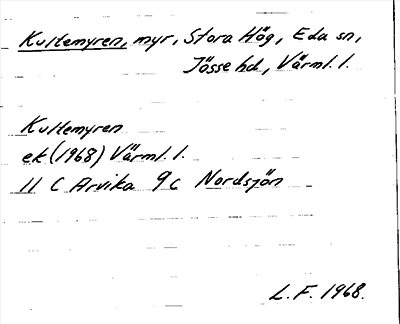 Kultemyren, myr, Stora Hög, Eda sn,
Jösse hd, Värml. l.
Kultemyren
ek (1968) Värml. l.
11 C Arvika 9c Nordsjön
L.F. 1968.